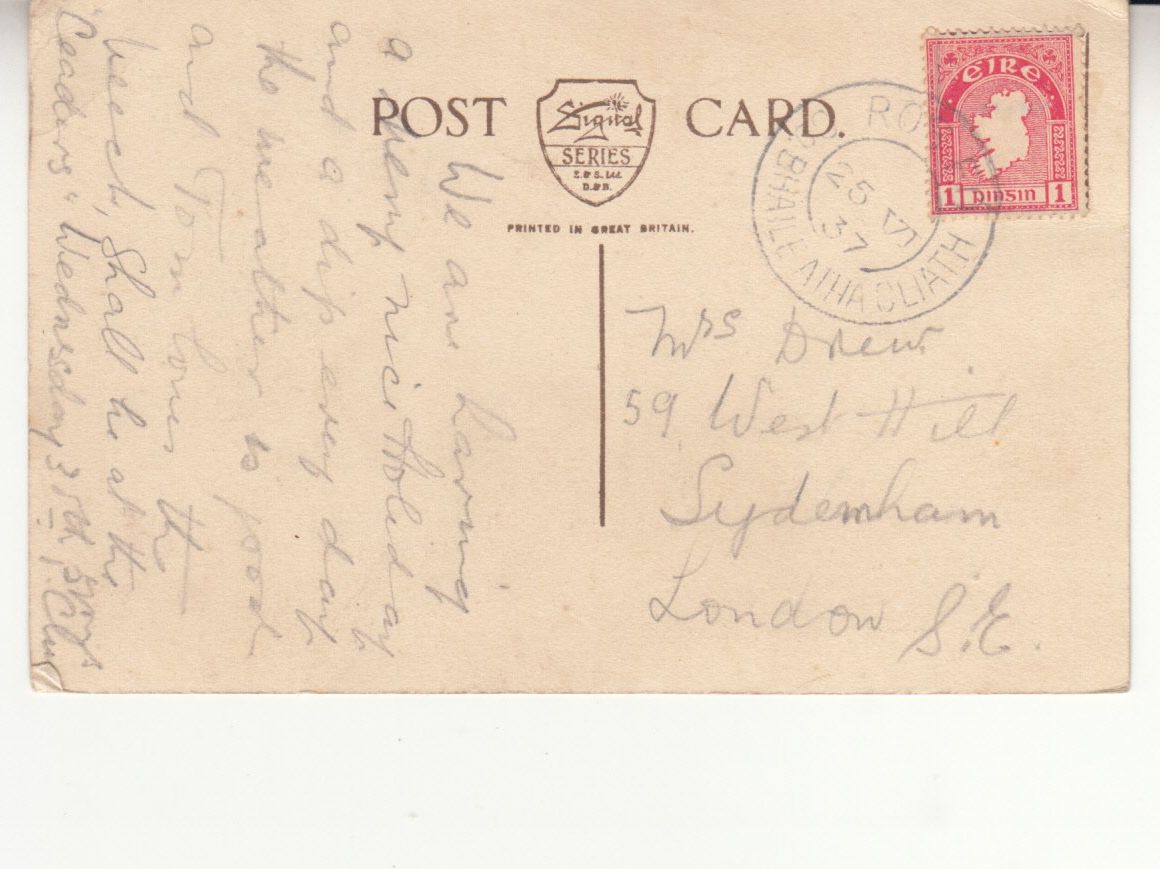 POST CARD.
Signal
SERIES
E. & S. Ltd
D. & B.
PRINTED IN GREAT BRITAIN.
ÉIRE
1 pingin 1
CO. BHAILE ATHA CLIATH
25 VI
37
Mrs Drew
59 West Hill
Sydenham
London S.E.
We are having
a very nice Holiday
and a dip every day
the weather is good
and Tom loves the
Shall be at the
"Ceadars" Wednesday